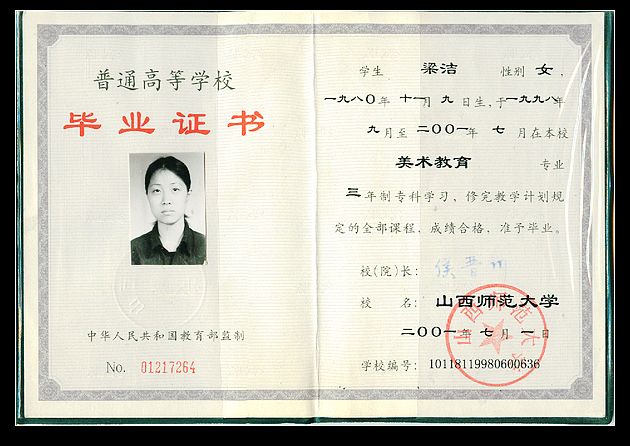 普通高等学校
毕业证书
中华人民共和国教育部监制
No. 01217264
学生 梁洁 性别 女，
一九八〇年 十一月 九 日生，于一九九八年
九 月至 二〇〇一年 七 月在本校
美术教育 专业
三 年制专科学习，修完教学计划规
定的全部课程，成绩合格，准予毕业。
校(院)长: 侯晋川
校 名: 山西师范大学
二〇〇一年 七 月 一 日
学校编号: 10118119980600636
山西师范大学